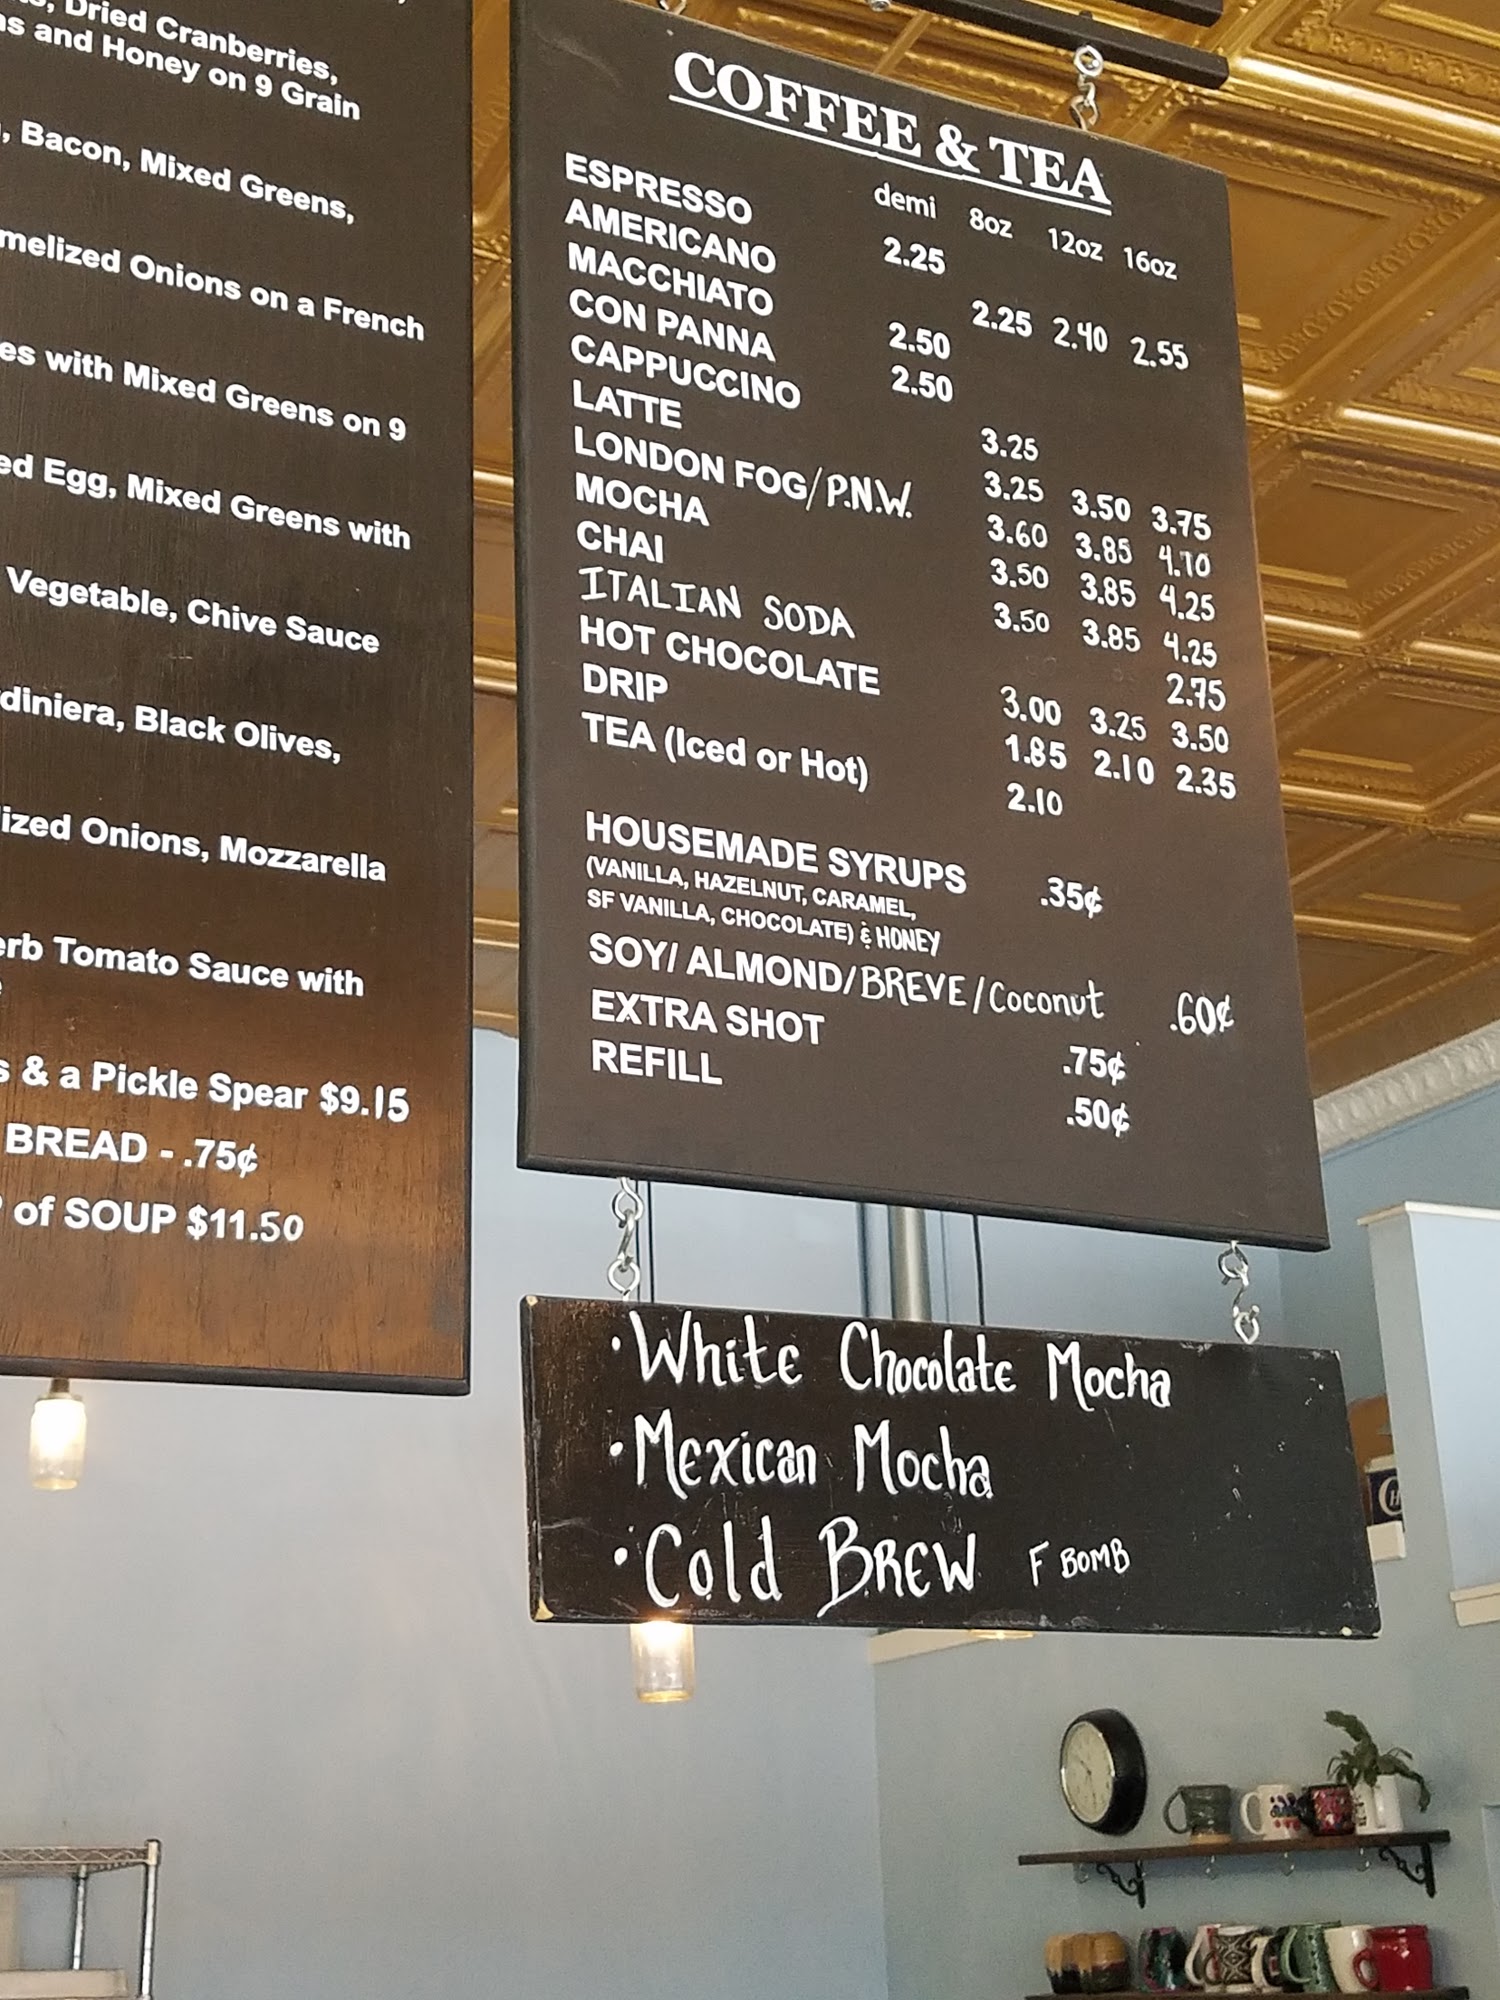 Dried Cranberries,
and Honey on 9 Grain
Bacon, Mixed Greens,
Onions on a French
with Mixed Greens on 9
Egg, Mixed Greens with
Vegetable, Chive Sauce
Black Olives,
Onions, Mozzarella
Tomato Sauce with
& a Pickle Spear $9.15
BREAD - .75¢
of SOUP $11.50
COFFEE & TEA
demi 8oz 12oz 16oz
ESPRESSO 2.25
AMERICANO 2.25 2.40 2.55
MACCHIATO 2.50
CON PANNA 2.50
CAPPUCCINO 3.25
LATTE 3.25 3.50 3.75
LONDON FOG/P.N.W. 3.60 3.85 4.10
MOCHA 3.50 3.85 4.25
CHAI 3.50 3.85 4.25
ITALIAN SODA 2.75
HOT CHOCOLATE 3.00 3.25 3.50
DRIP 1.85 2.10 2.35
TEA (Iced or Hot) 2.10
HOUSEMADE SYRUPS .35¢
(VANILLA, HAZELNUT, CARAMEL,
SF VANILLA, CHOCOLATE) & HONEY
SOY/ ALMOND/BREVE/Coconut .60¢
EXTRA SHOT .75¢
REFILL .50¢
• White Chocolate Mocha
• Mexican Mocha
• Cold BREW F BOMB